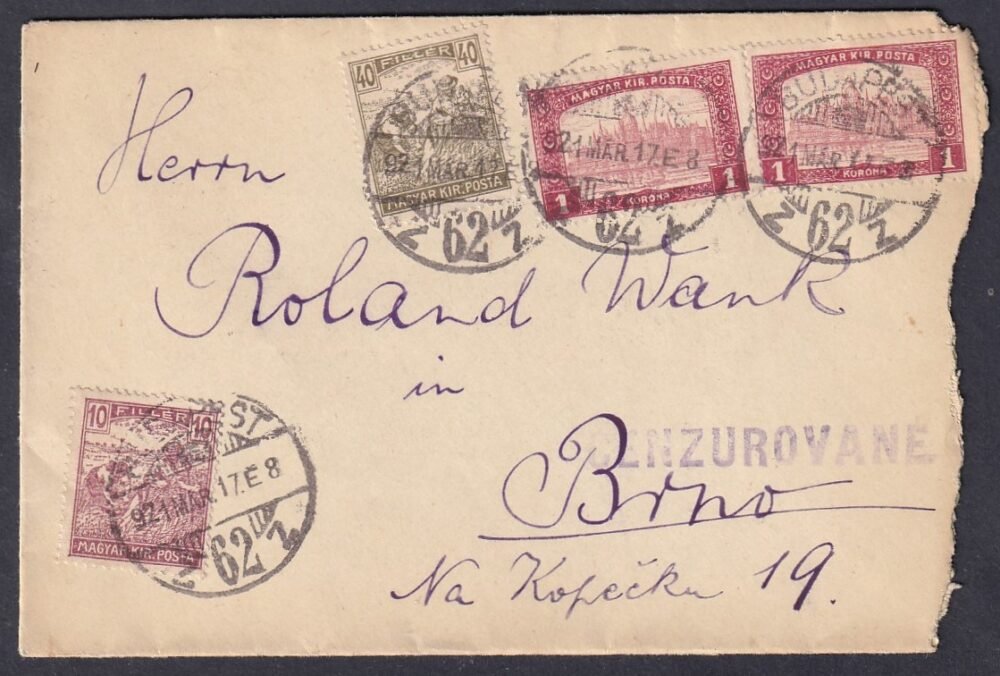 40 FILLÉR 40
MAGYAR KIR. POSTA
MAGYAR KIR. POSTA
1 KORONA 1
MAGYAR KIR. POSTA
1 KORONA 1
BUDAPEST
921 MÁR. 17. E 8
62
921 MÁR. 17. E 8
62
BUDAPEST
921 MÁR. 17. E 8
62
Herrn
Roland Wank
in
Brno
CENZUROVANE
Na Kopečku 19.
10 FILLÉR 10
MAGYAR KIR. POSTA
921 MÁR. 17. E 8
62